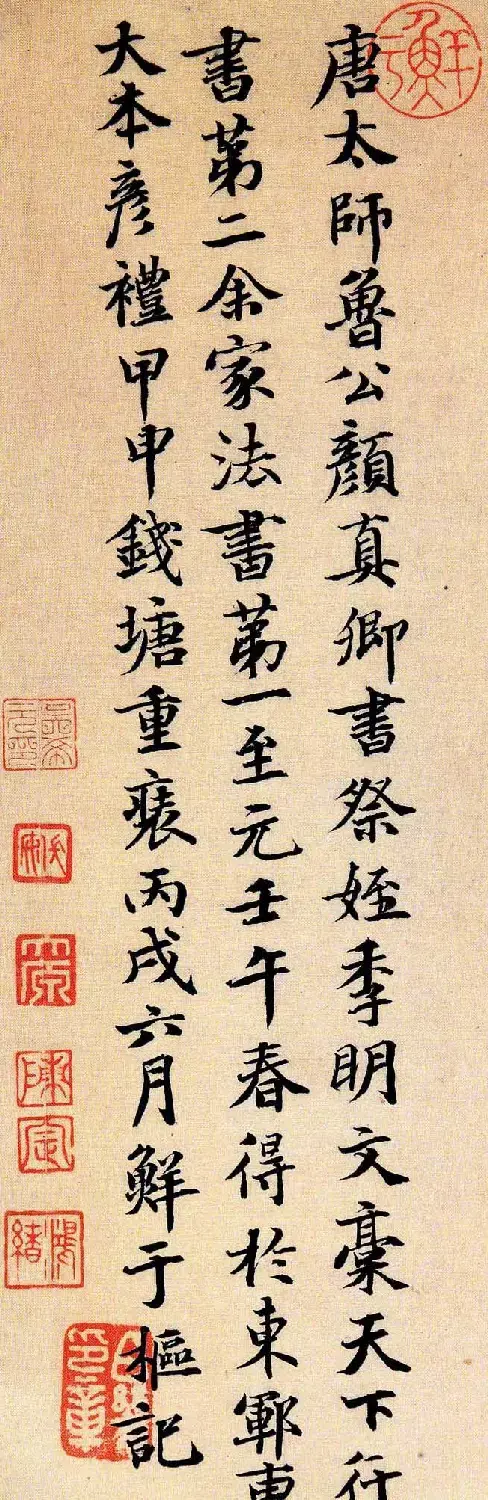 鮮于
唐太師魯公顏真卿書祭姪季明文藁天下行
書第二余家法書第一至元壬午春得於東鄆曹
大本彥禮甲申錢塘重裝丙戌六月鮮于樞記